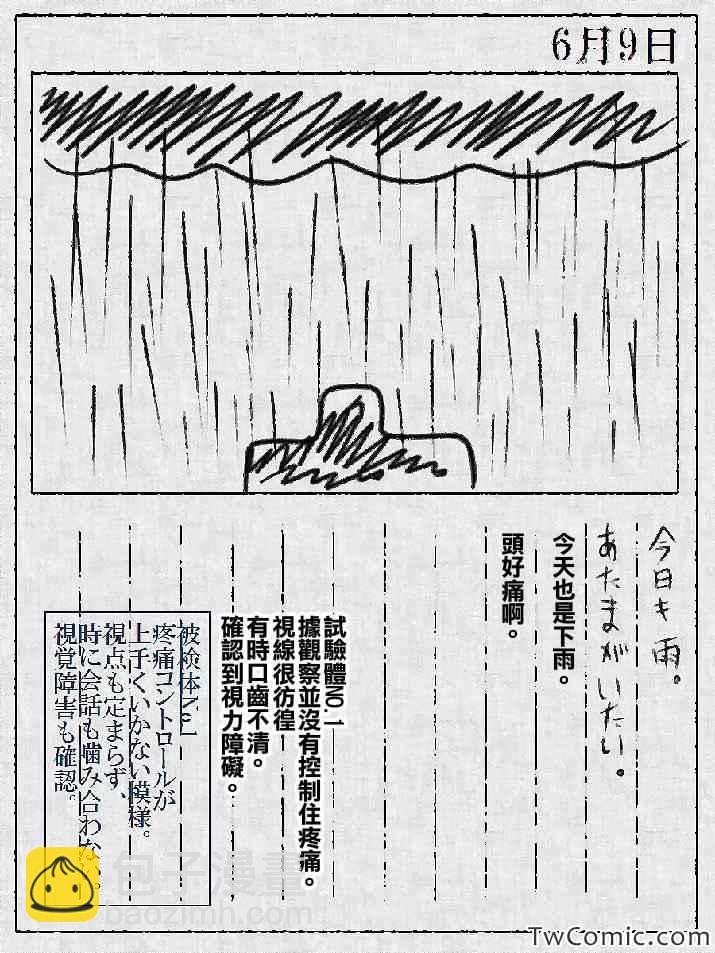 6月9日
今日キ雨。
あたまがいたい。
今天也是下雨。
頭好痛啊。
試驗體NO.1
據觀察並沒有控制住疼痛。
視線很彷徨
有時口齒不清。
確認到視力障礙。
被検体No.1
疼痛コントロールが
上手くいかない模様。
視点も定まらず、
時に会話も噛み合わない。
視覚障害も確認。
包子漫畫
baozimh.com
TwComic.com